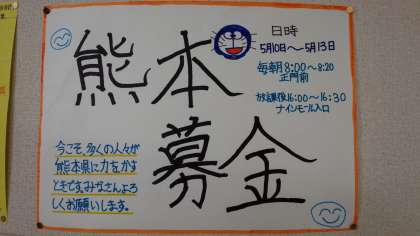 熊本
募金
日時
5月10日〜5月13日
毎朝8:00〜8:20
正門前
放課後16:00〜16:30
ナインモール入口
今こそ、多くの人々が
熊本県に力をかす
ときです。みなさんよろ
しくお願いします。